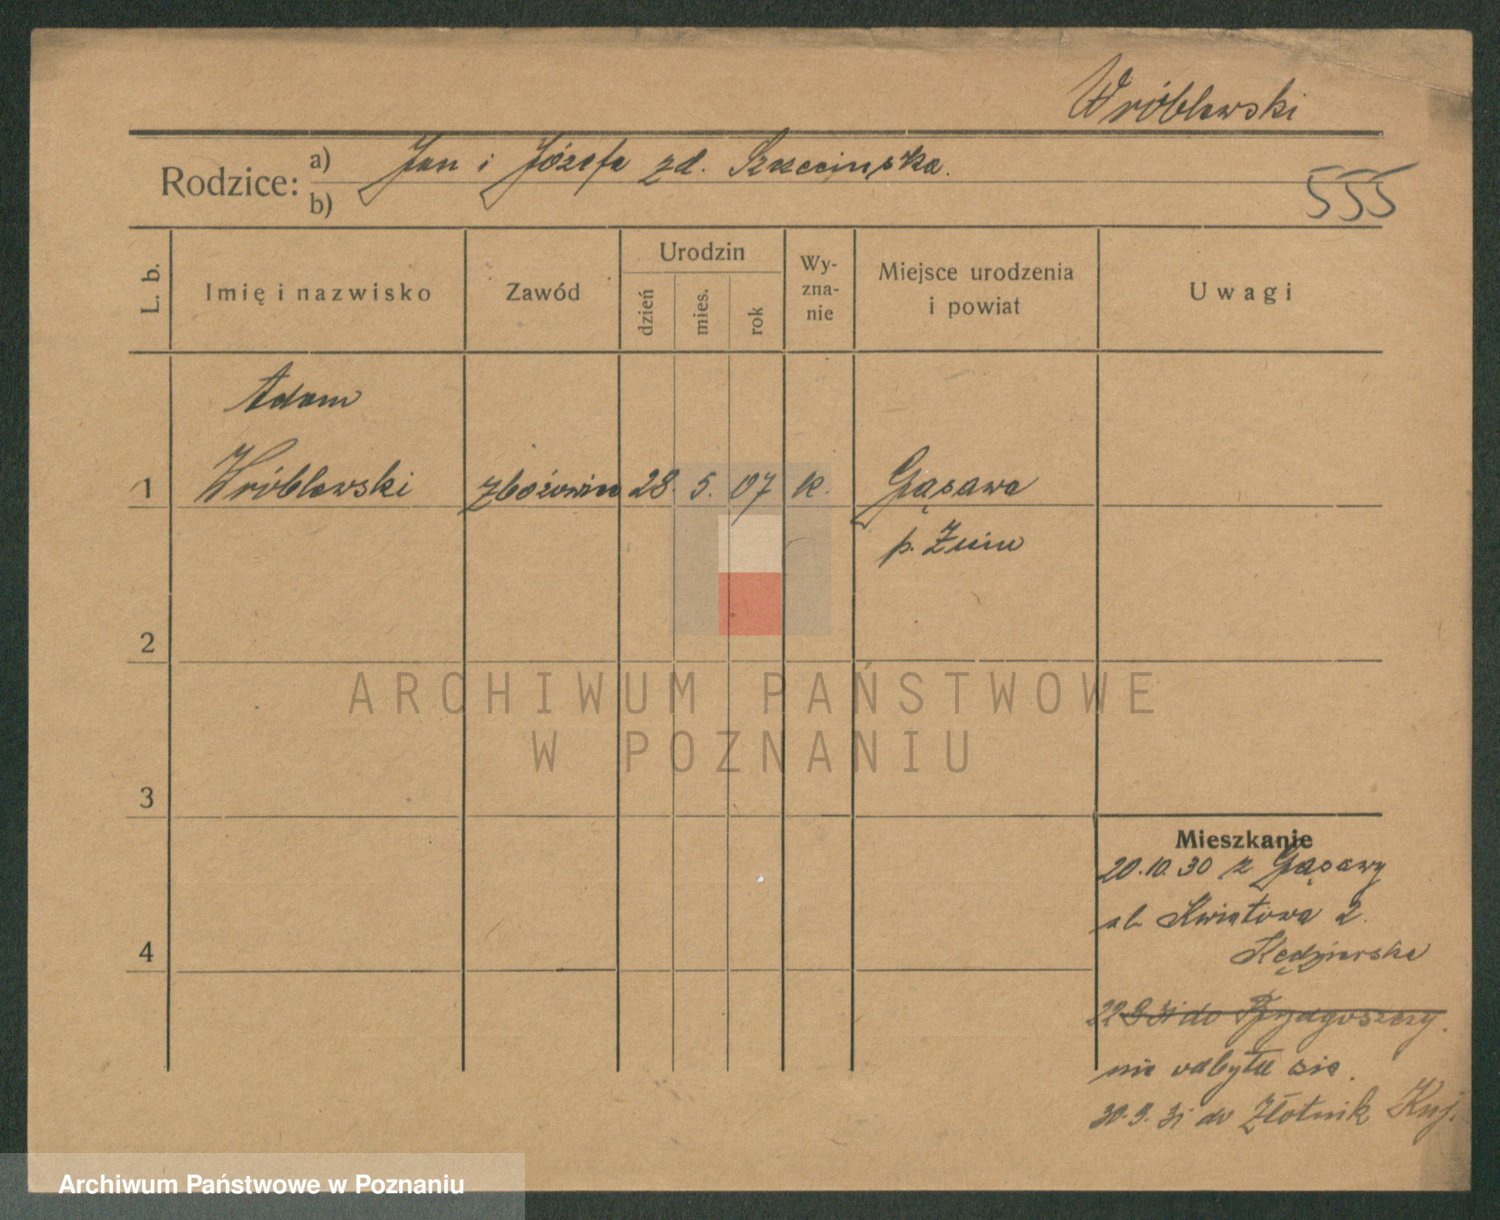 Wróblewski
Rodzice: a) Jan i Józefa zd. Szczecińska.
b)
555
L. b.
Imię i nazwisko
Zawód
Urodzin
dzień
mies.
rok
Wy-
zna-
nie
Miejsce urodzenia
i powiat
Uwagi
Adam
1 Wróblewski zbożowiec 28. 5. 07 k. Gąsawa
p. Żnin
2
ARCHIWUM PAŃSTWOWE
W POZNANIU
3
Mieszkanie
20.10.30 z Gąsawy
ul. Kwiatowa 2.
4
Kędzierska
22 9 31 do Bydgoszczy.
nie odbyło się.
30.9.31 do Złotnik Kuj.
Archiwum Państwowe w Poznaniu